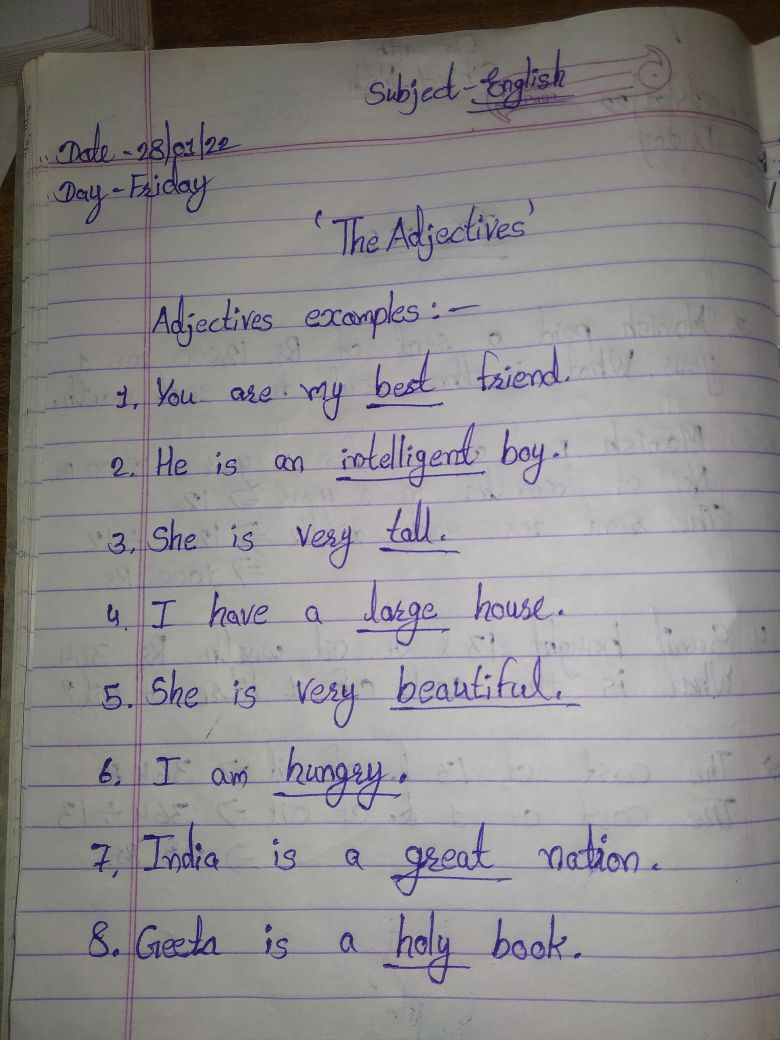 Subject - English
Date - 28/01/22
Day - Friday
'The Adjectives'
Adjectives examples : —
1. You are my best friend.
2. He is an intelligent boy.
3. She is very tall.
4. I have a large house.
5. She is very beautiful.
6. I am hungry.
7. India is a great nation.
8. Geeta is a holy book.